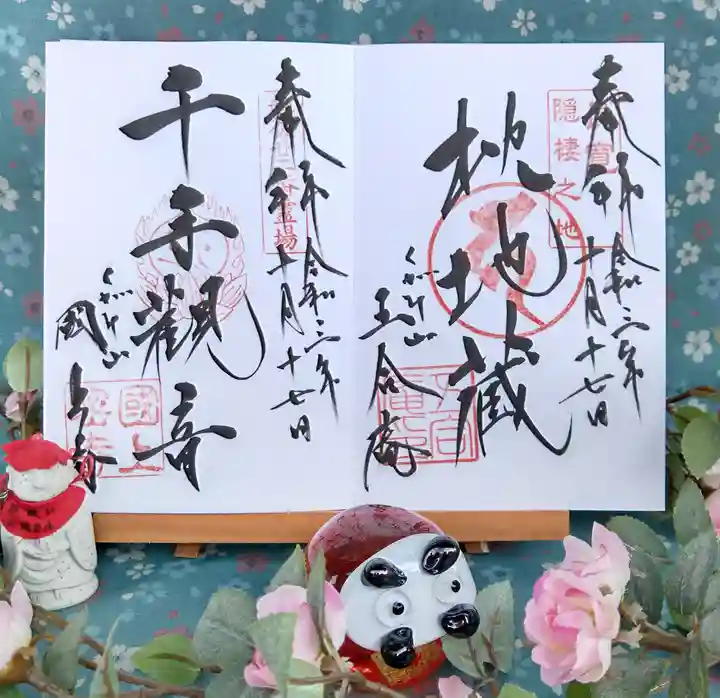 奉拝 令和三年十月十七日
隠棲之地
枕地蔵
くがみ山
五合庵
奉拝 令和三年十月十七日
霊場
千手觀音
くがみ山
国上寺
國上